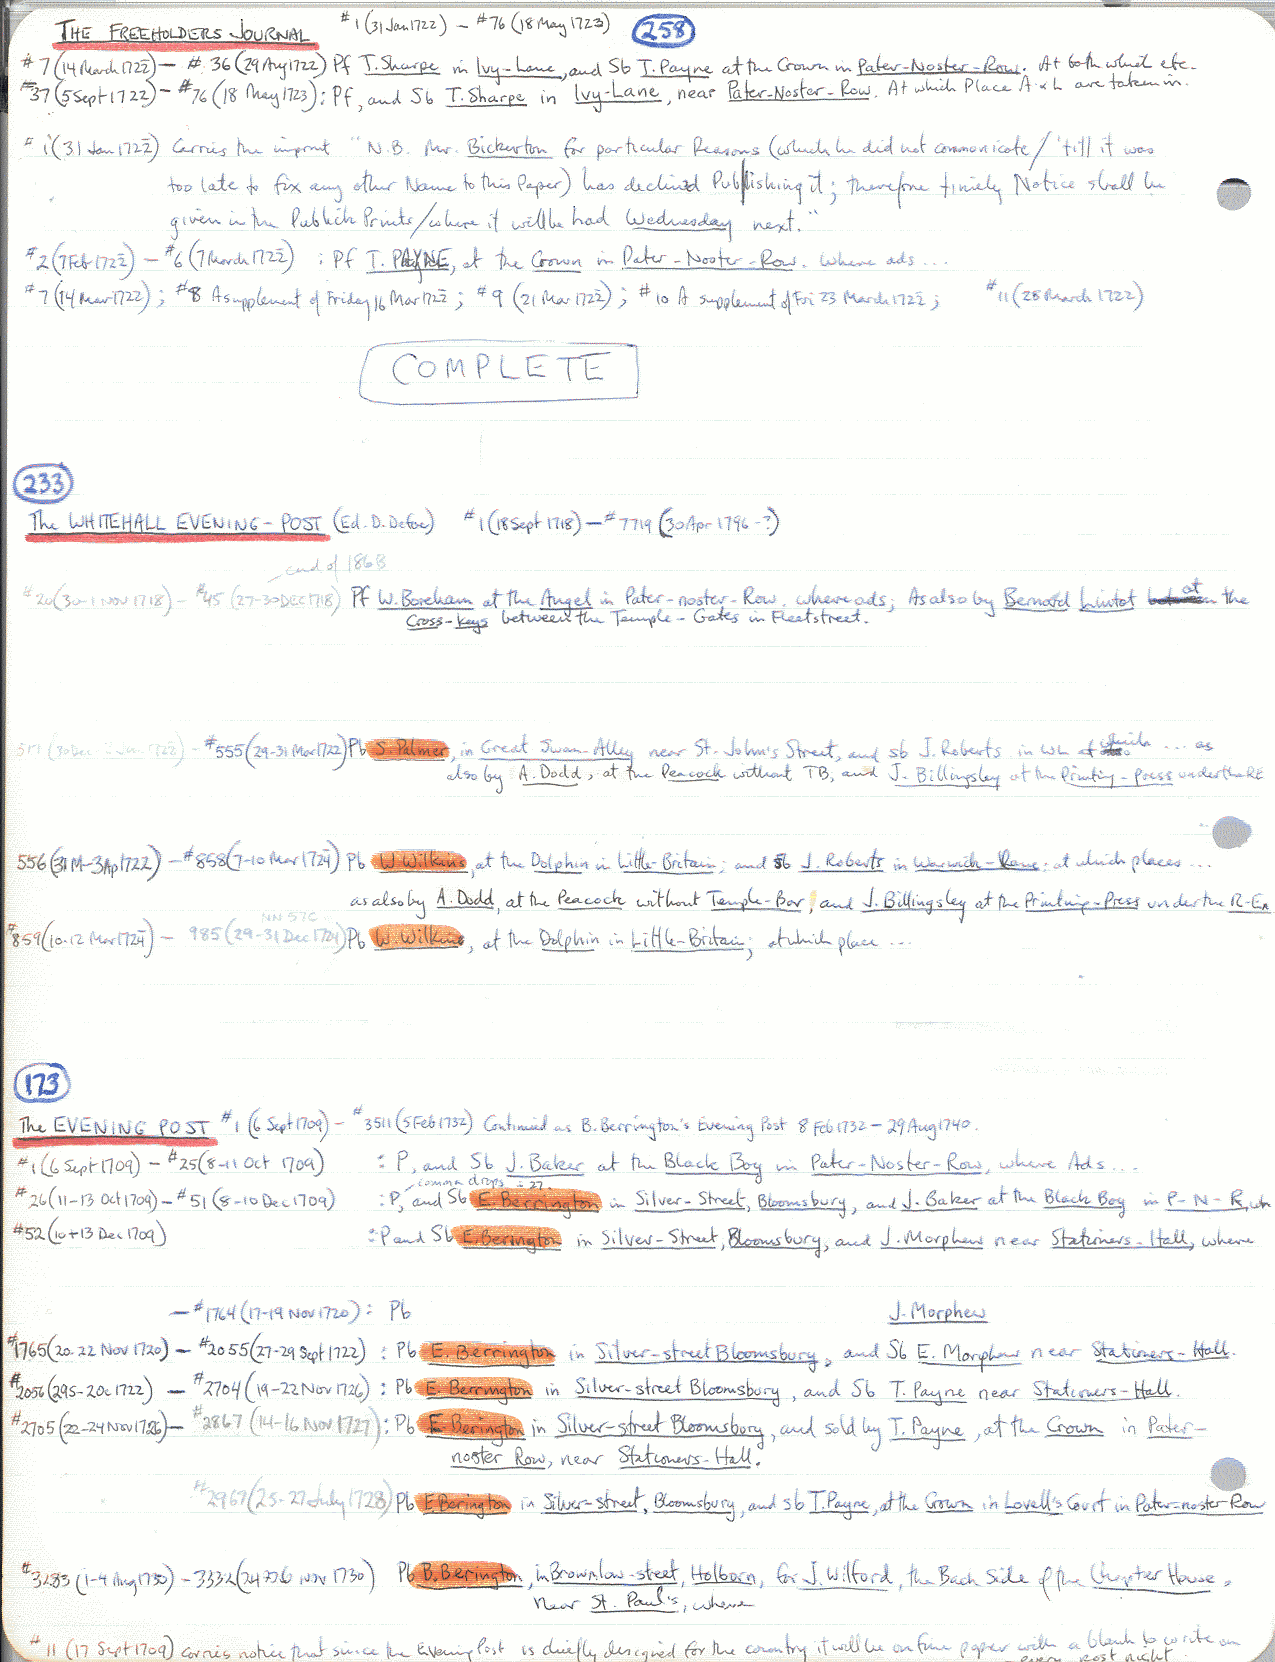 THE FREEHOLDERS JOURNAL #1 (31 Jan 1722) — #76 (18 May 1723) 258
#7 (14 March 1722) — #36 (29 Aug 1722) Pf T. Sharpe in Ivy-Lane, and Sb T. Payne at the Crown in Pater-Noster-Row. At both which etc.
#37 (5 Sept 1722) — #76 (18 May 1723): Pf, and Sb T. Sharpe in Ivy-Lane, near Pater-Noster-Row. At which Place A & L are taken in.
#1 (31 Jan 1722) Carries the imprint "N.B. Mr. Bickerton for particular Reasons (which he did not communicate / 'till it was
too late to fix any other Name to this Paper) has declined Publishing it; therefore timely Notice shall be
given in the Publick Prints / where it will be had Wednesday next."
#2 (7 Feb 1722) — #6 (7 March 1722) : Pf T. PAYNE, at the Crown in Pater-Noster-Row. Where ads...
#7 (14 Mar 1722); #8 A supplement of Friday 16 Mar 1722; #9 (21 Mar 1722); #10 A supplement of Fri 23 March 1722; #11 (28 March 1722)
COMPLETE
233
The WHITEHALL EVENING-POST (Ed. D. Defoe) #1 (18 Sept 1718) — #7719 (30 Apr 1796 -?)
end of 186B
#20 (30-1 Nov 1718) — #45 (27-30 DEC 1718) Pf W. Boreham at the Angel in Pater-noster-Row, where ads; As also by Bernard Lintot at the
Cross-Keys between the Temple-Gates in Fleetstreet.
(30 Dec - Jan 1722) — #555 (29-31 Mar 1722) Pb S. Palmer, in Great Swan-Alley near St. John's Street, and sb J. Roberts in WL at which ... as
also by A. Dodd, at the Peacock without TB, and J. Billingsley at the Printing-Press under the RE
556 (31 M-3 Ap 1722) — #858 (7-10 Mar 1724) Pb W Wilkins, at the Dolphin in Little-Britain; and sb J. Roberts in Warwick-Lane; at which places ...
as also by A. Dodd, at the Peacock without Temple-Bar, and J. Billingsley at the Printing-Press under the R-Ex
NN 57C
#859 (10-12 Mar 1724) — 985 (29-31 Dec 1724) Pb W. Wilkins, at the Dolphin in Little-Britain; at which place ...
173
The EVENING POST #1 (6 Sept 1709) — #3511 (5 Feb 1732) Continued as B. Berrington's Evening Post 8 Feb 1732 — 29 Aug 1740.
#1 (6 Sept 1709) — #25 (8-11 Oct 1709) : P, and Sb J. Baker at the Black Boy in Pater-Noster-Row, where Ads...
comma drops : 27.
#26 (11-13 Oct 1709) — #51 (8-10 Dec 1709) : P, and Sb E. Berrington in Silver-Street, Bloomsbury, and J. Baker at the Black Boy in P-N-R, wh
#52 (10-13 Dec 1709) : P and Sb E. Berington in Silver-Street, Bloomsbury, and J. Morphew near Stationers-Hall, where
— #1764 (17-19 Nov 1720) : Pb J. Morphew
#1765 (20-22 Nov 1720) — #2055 (27-29 Sept 1722) : Pb E. Berrington in Silver-street Bloomsbury, and Sb E. Morphew near Stationers-Hall.
#2056 (29S-2 Oct 1722) — #2704 (19-22 Nov 1726) : Pb E. Berrington in Silver-street Bloomsbury, and Sb T. Payne near Stationers-Hall.
#2705 (22-24 Nov 1726) — #2867 (14-16 Nov 1727) : Pb E Berington in Silver-street Bloomsbury, and sold by T. Payne, at the Crown in Pater-
noster Row, near Stationers-Hall.
#2967 (25-27 July 1728) Pb E Berington in Silver-street, Bloomsbury, and sb T. Payne, at the Crown in Lovell's Court in Pater-noster-Row
#3283 (1-4 Aug 1730) — 3332 (24-26 Nov 1730) Pb B. Berington, in Brownlow-street, Holborn, for J. Wilford, the Back Side of the Chapter House,
near St. Paul's, where
#11 (17 Sept 1709) carries notice that since the Evening Post is chiefly designed for the country it will be on fine paper with a blank to write on
every post night